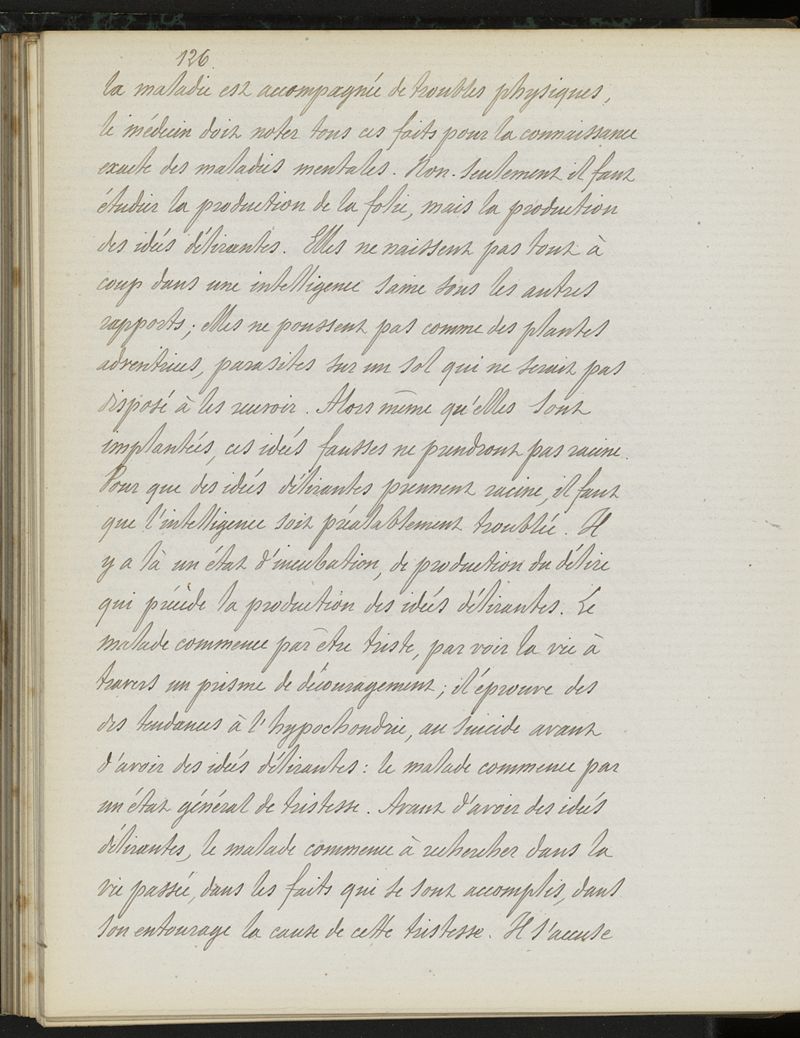 126.
la maladie est accompagnée de troubles physiques,
le médecin doit noter tous ces faits pour la connaissance
exacte des maladies mentales. Non-seulement il faut
étudier la production de la folie, mais la production
des idées délirantes. Elles ne naissent pas tout à
coup dans une intelligence saine sous les autres
rapports; elles ne poussent pas comme des plantes
adventices, parasites sur un sol qui ne serait pas
disposé à les recevoir. Alors même qu'elles sont
implantées, ces idées fausses ne prendront pas racine.
Pour que des idées délirantes prennent racine, il faut
que l'intelligence soit préalablement troublée. Il
y a là un état d'incubation, de production du délire
qui précède la production des idées délirantes. Le
malade commence par être triste, par voir la vie à
travers un prisme de découragement; il éprouve des
des tendances à l'hypochondrie, au suicide avant
d'avoir des idées délirantes: le malade commence par
un état général de tristesse. Avant d'avoir des idées
délirantes, le malade commence à rechercher dans la
vie passée, dans les faits qui se sont accomplis, dans
son entourage la cause de cette tristesse. Il s'accuse